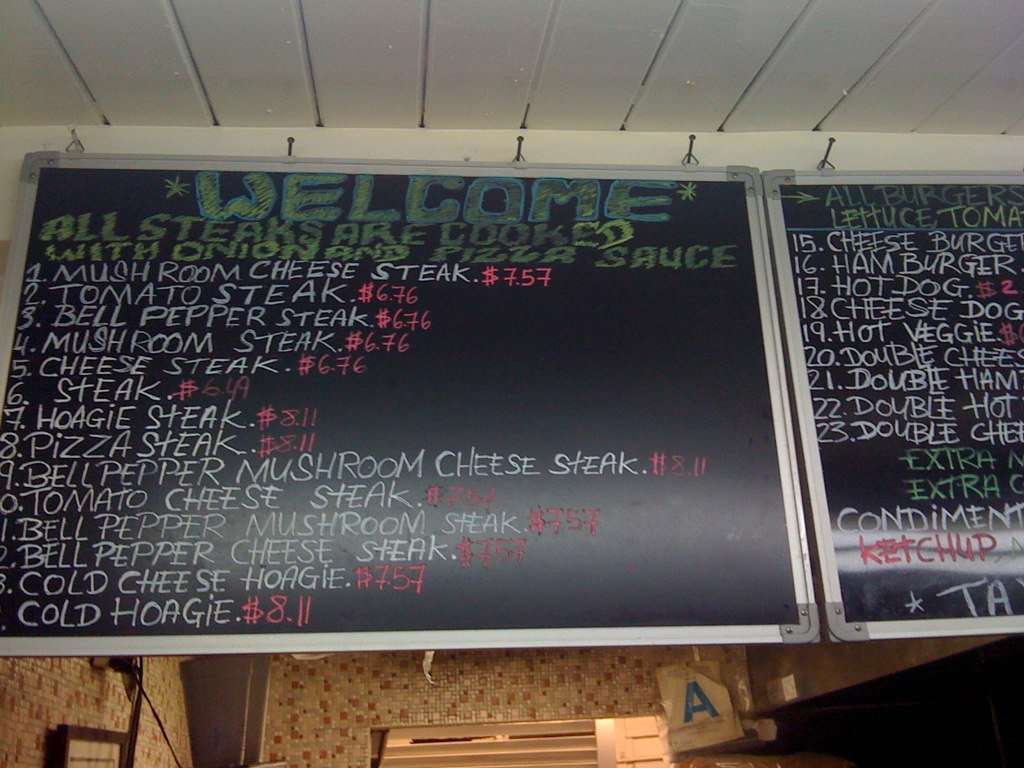 * WELCOME *
ALL STEAKS ARE COOKED
WITH ONION AND PIZZA SAUCE
1. MUSHROOM CHEESE STEAK. $7.57
2. TOMATO STEAK. $6.76
3. BELL PEPPER STEAK. $6.76
4. MUSHROOM STEAK. $6.76
5. CHEESE STEAK. $6.76
6. STEAK. $6.49
7. HOAGIE STEAK. $8.11
8. PIZZA STEAK. $8.11
9. BELL PEPPER MUSHROOM CHEESE STEAK. $8.11
0. TOMATO CHEESE STEAK. $7.57
1. BELL PEPPER MUSHROOM STEAK. $7.57
2. BELL PEPPER CHEESE STEAK. $7.57
3. COLD CHEESE HOAGIE. $7.57
COLD HOAGIE. $8.11
→ ALL BURGERS
LETTUCE, TOMA
15. CHEESE BURGE
16. HAM BURGER.
17. HOT DOG. $2
18. CHEESE DOG
19. HOT VEGGIE. $
20. DOUBLE CHEES
21. DOUBLE HAM
22. DOUBLE HOT
23. DOUBLE CHE
EXTRA
EXTRA
CONDIMENT
KETCHUP
* TA
A